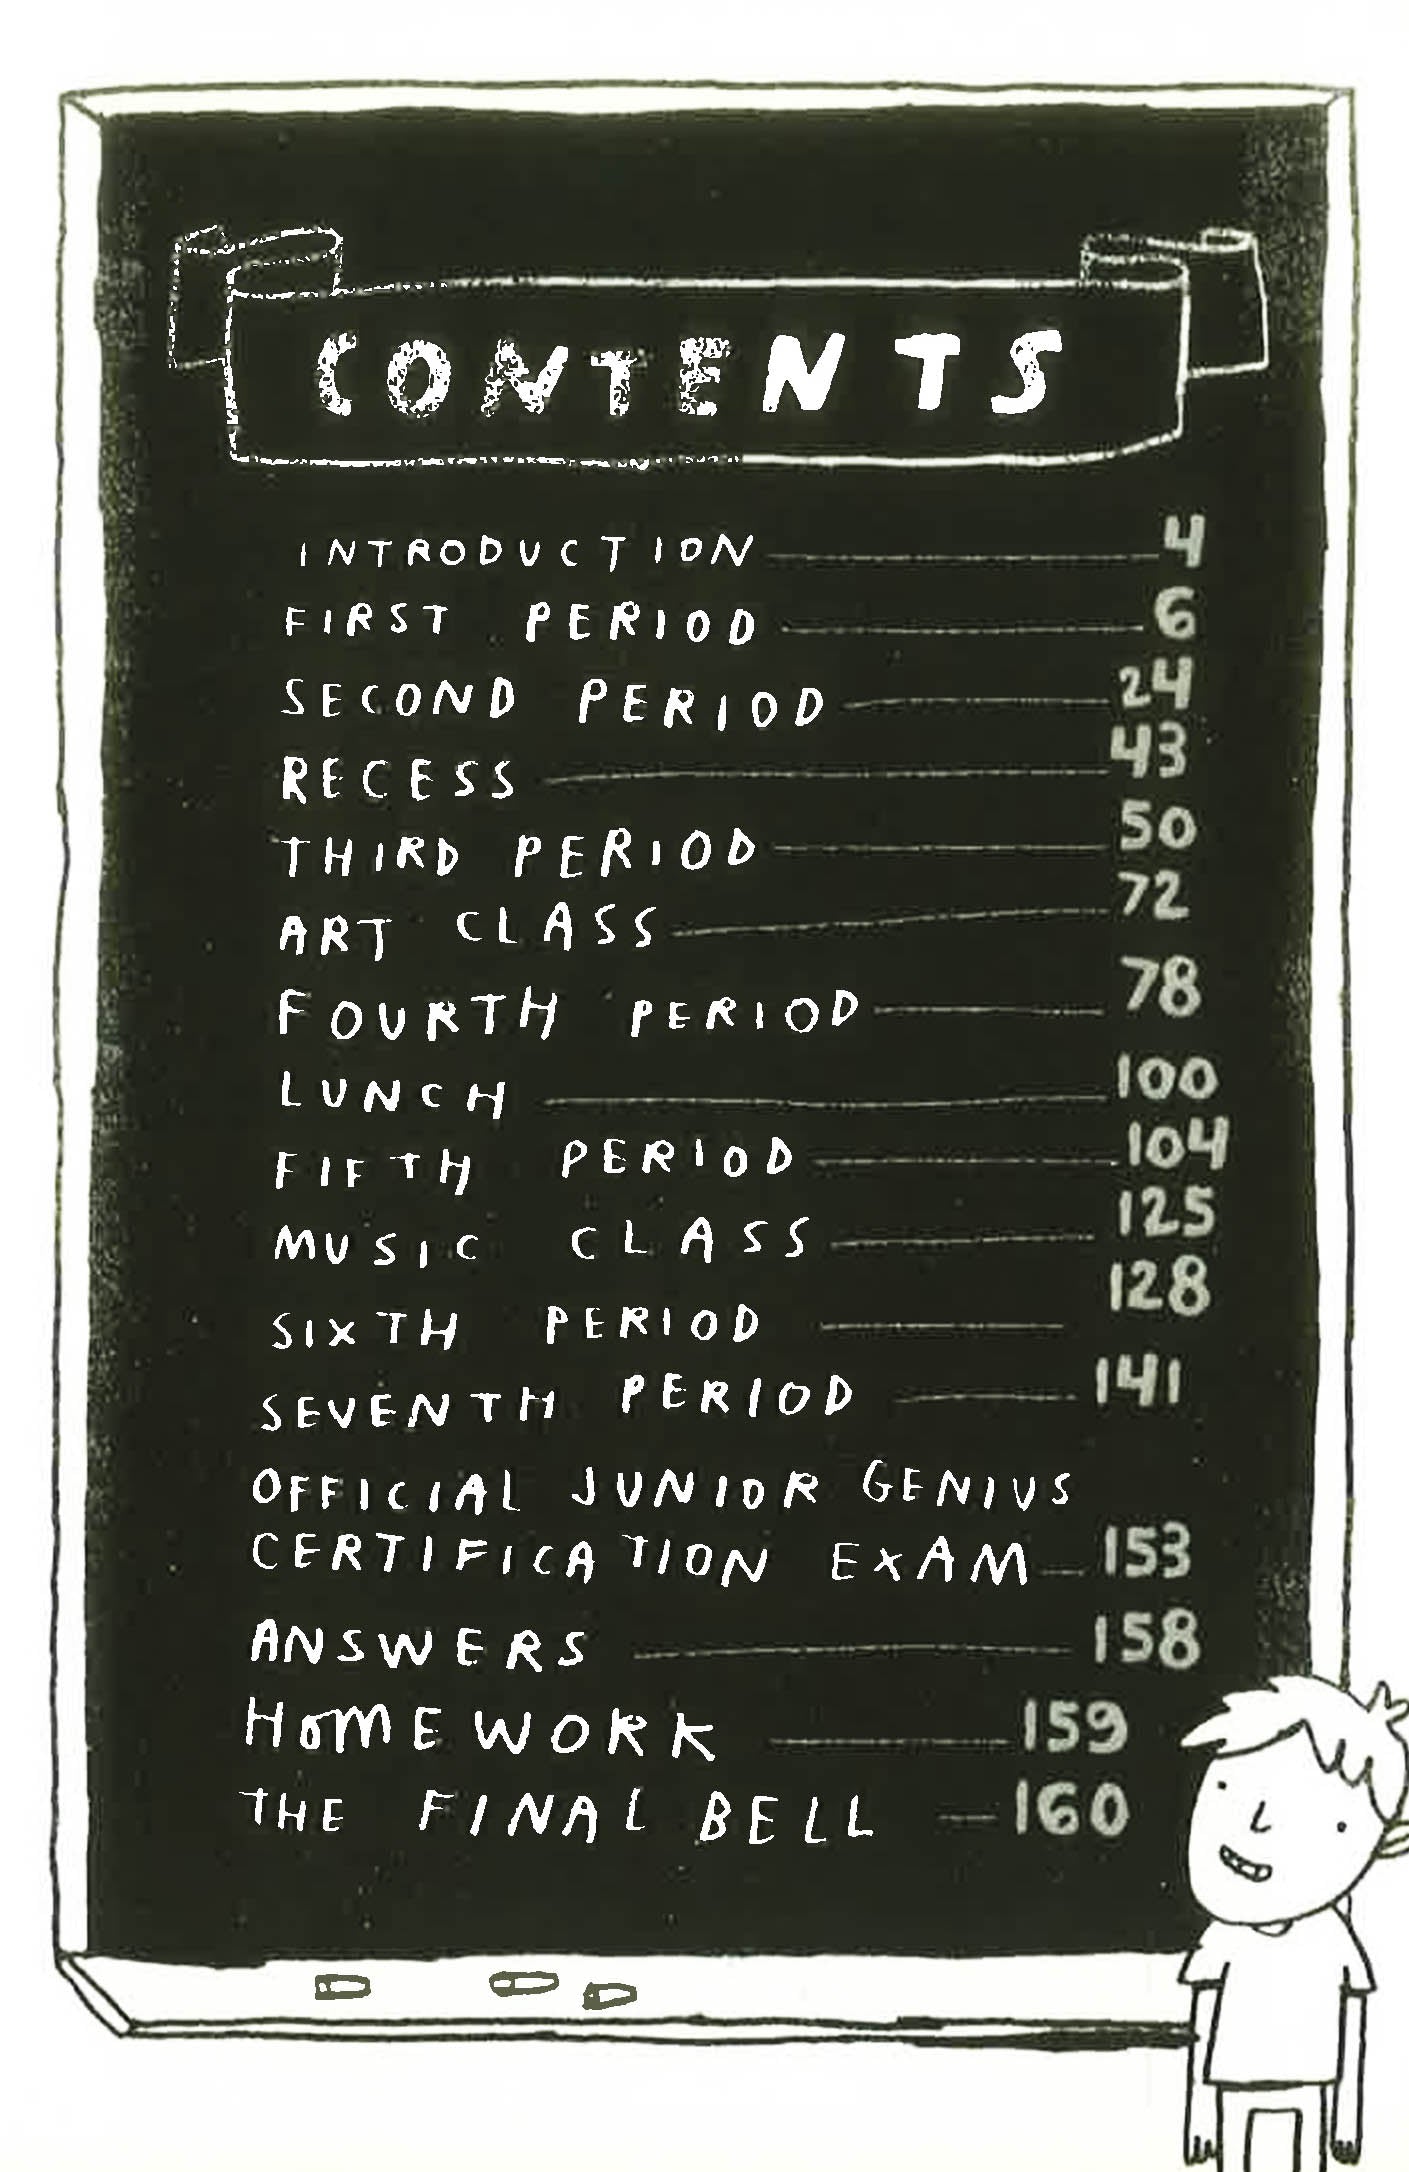 CONTENTS
INTRODUCTION 4
FIRST PERIOD 6
SECOND PERIOD 24
RECESS 43
THIRD PERIOD 50
ART CLASS 72
FOURTH PERIOD 78
LUNCH 100
FIFTH PERIOD 104
MUSIC CLASS 125
SIXTH PERIOD 128
SEVENTH PERIOD 141
OFFICIAL JUNIOR GENIUS
CERTIFICATION EXAM 153
ANSWERS 158
HOMEWORK 159
THE FINAL BELL 160